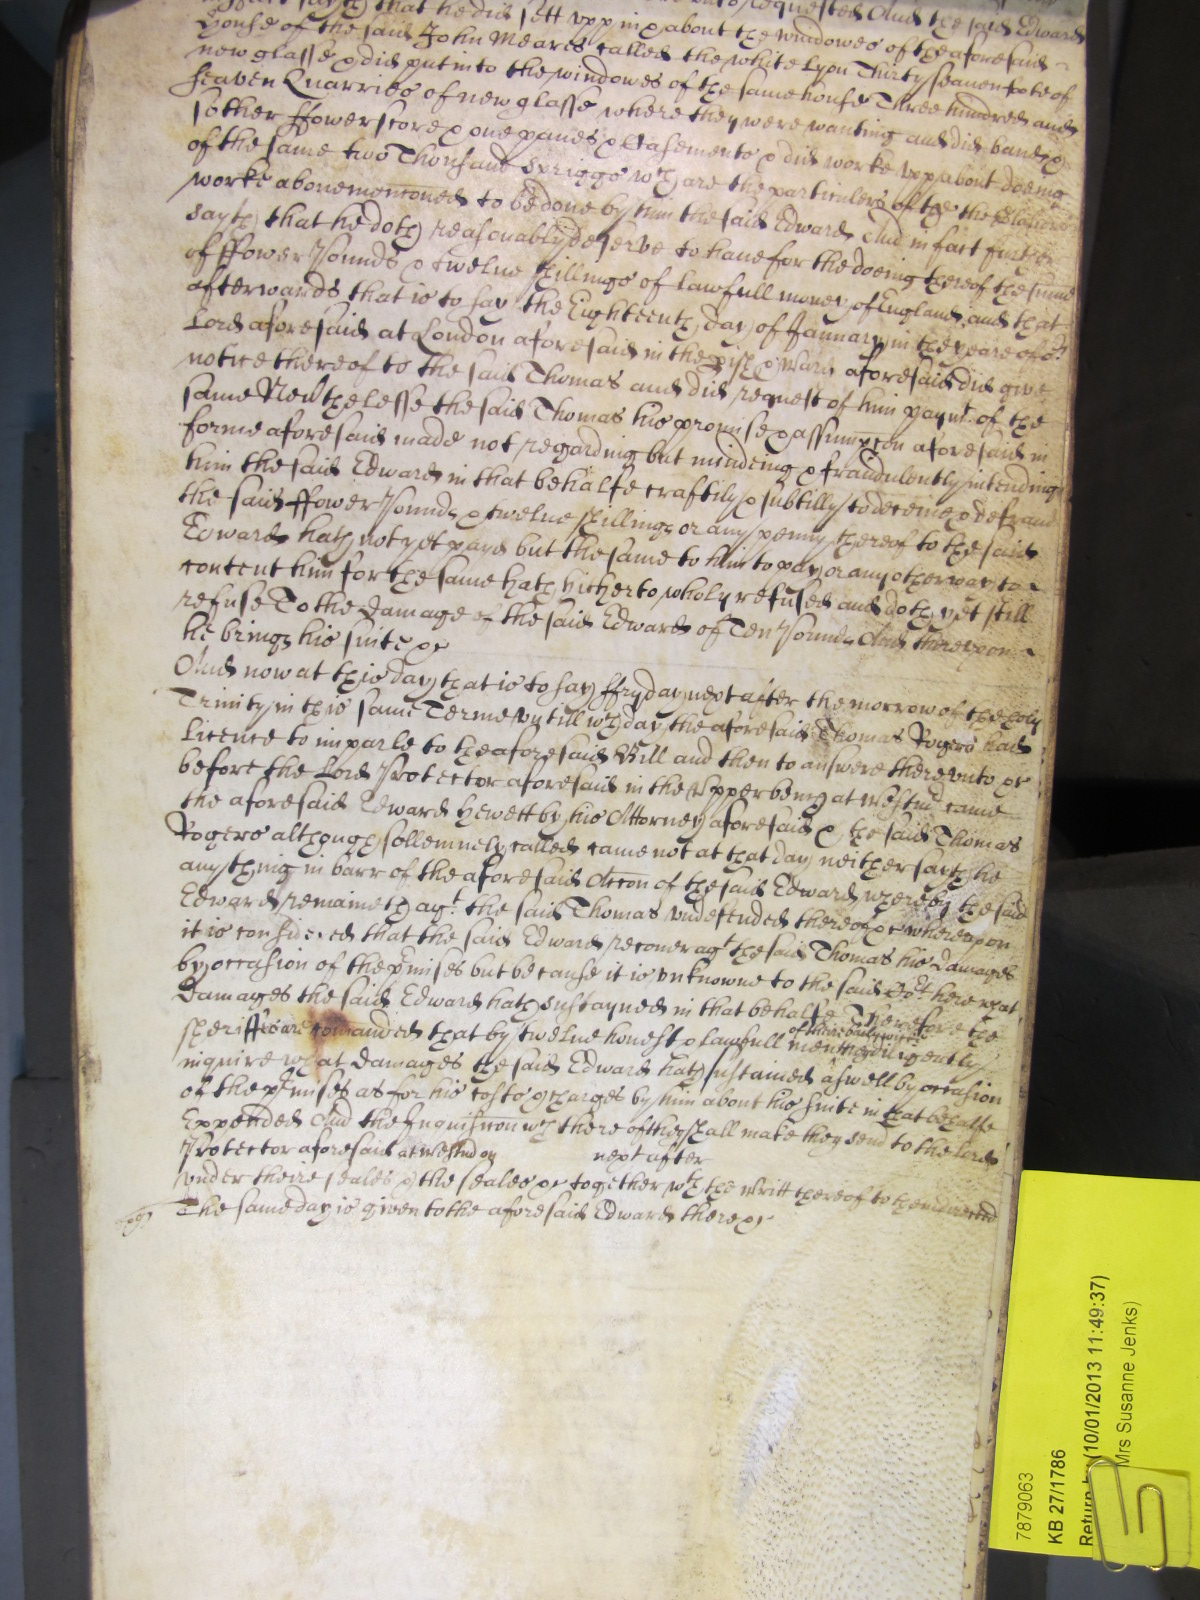 in fact sayth that he did sett upp in & about the windowes of the aforesaid
house of the said John Meares called the white Lyon Thirty seaven foote of
new glasse & did putt into the windowes of the same house Three hundred and
seaven Quarries of new glasse where they were wanting and did band &
sother ffower score & one panes & Casements & did worke upp about doeing
of the same two Thousand Spriggs wch are the particulers of the Glasiers
worke abovemenconed to be done by him the said Edward And in fact further
sayth that he doth reasonably deserve to have for the doeing thereof the summe
of ffower Pounds & twelve shillings of lawfull money of England and that
afterwards that is to say the Eighteenth day of January in the yeare of or
Lord aforesaid at London aforesaid in the pish & Ward aforesaid did give
notice thereof to the said Thomas and did request of him paymt of the
same Nevthelesse the said Thomas his promise & assumpcon aforesaid in
forme aforesaid made not regarding but mindeing & fraudulently intending
him the said Edward in that behalfe craftily & subtilly to deceive & defraud
the said ffower Pounds & twelve shillings or any penny thereof to the said
Edward hath not yet payd but the same to him to pay or any other way to
content him for the same hath hitherto wholy refused and doth yet still
refuse To the Damage of the said Edward of Ten Pounds And thereupon
he brings his suite &c
And now at this day that is to say ffryday next after the morrow of the holy
Trinity in this same Terme untill wch day the aforesaid Thomas Rogers had
Licence to imparle to the aforesaid Bill and then to answere thereunto &c
before the Lord Protector aforesaid in the Upper bench at Westmr came
the aforesaid Edward Hewett by his Attorney aforesaid & the said Thomas
Rogers although sollemnely called came not at that day neither sayth he
any thing in barr of the aforesaid Accon of the said Edward whereby the said
Edward remaineth agt the said Thomas undefended thereof &c whereupon
it is considered that the said Edward recover agt the said Thomas his Damages
by occasion of the pmises but because it is unknowne to the said Cort here what
Damages the said Edward hath sustayned in that behalfe Therefore the
sheriffs are comanded that by twelve honest & lawfull men of theire bailywick they diligently
inquire what Damages the said Edward hath sustained aswell by occasion
of the pmises as for his costs & charges by him about his suite in that behalfe
Expended And the Inquisicon wch thereof they shall make they send to the Lord
Protector aforesaid at Westmr on next after
under theire seales & the seales &c together wth the Writt thereof to them directed
The same day is given to the aforesaid Edward there &c
7879063
KB 27/1786
Return by (10/01/2013 11:49:37)
Mrs Susanne Jenks)